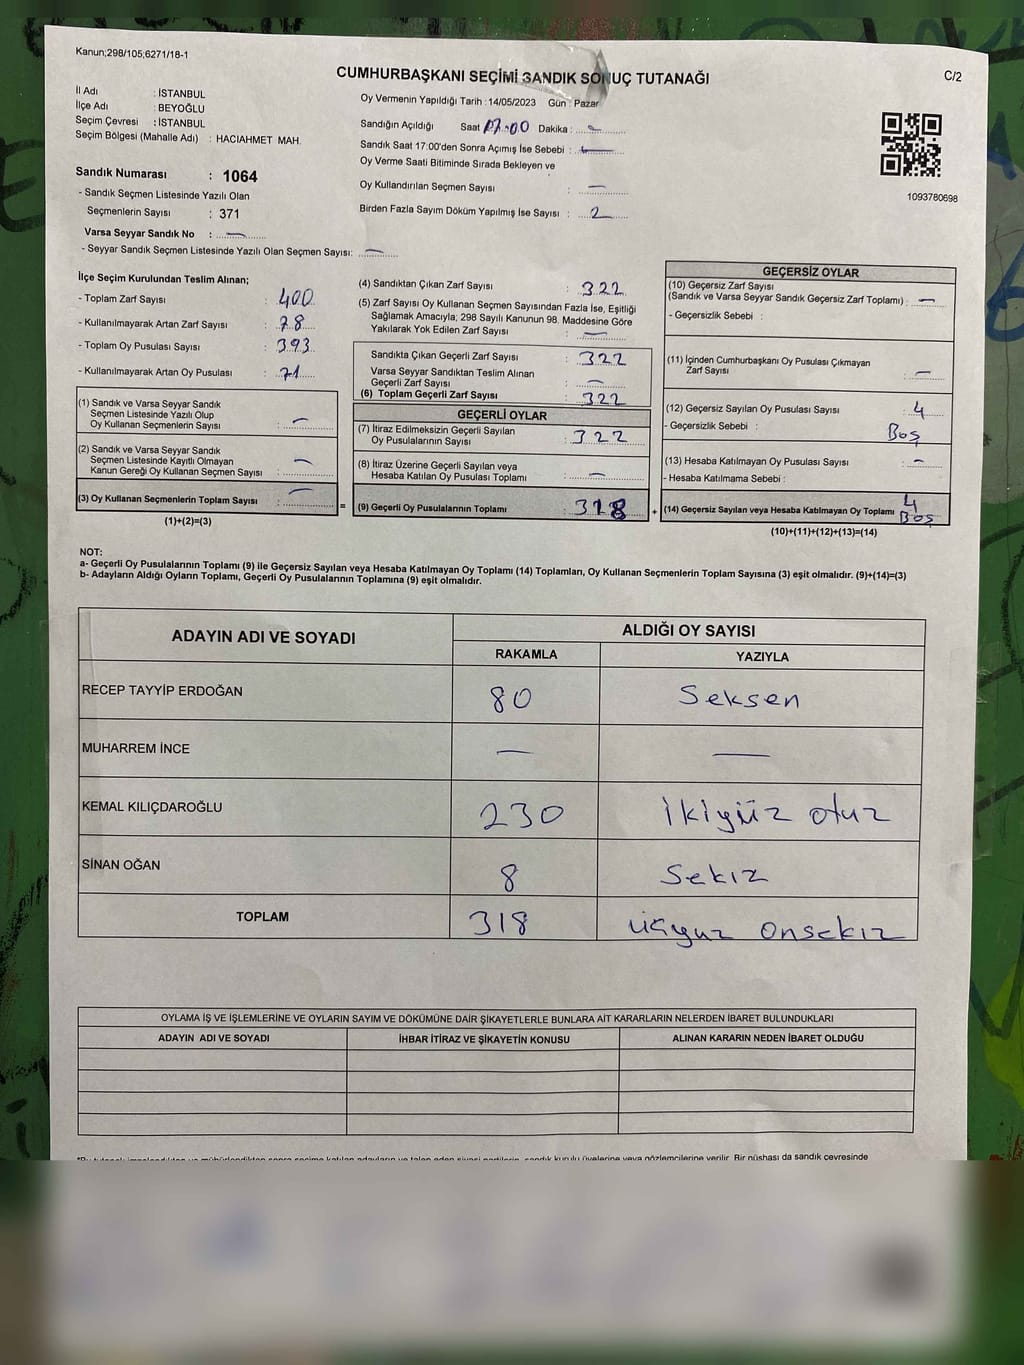 Kanun;298/105;6271/18-1
CUMHURBAŞKANI SEÇİMİ SANDIK SONUÇ TUTANAĞI
C/2
İl Adı : İSTANBUL
İlçe Adı : BEYOĞLU
Seçim Çevresi : İSTANBUL
Seçim Bölgesi (Mahalle Adı) : HACIAHMET MAH.
Sandık Numarası : 1064
- Sandık Seçmen Listesinde Yazılı Olan
Seçmenlerin Sayısı : 371
Varsa Seyyar Sandık No : —
- Seyyar Sandık Seçmen Listesinde Yazılı Olan Seçmen Sayısı: —
Oy Vermenin Yapıldığı Tarih : 14/05/2023 Gün : Pazar
Sandığın Açıldığı Saat 17:00 Dakika : —
Sandık Saat 17:00'den Sonra Açımış İse Sebebi : —
Oy Verme Saati Bitiminde Sırada Bekleyen ve
Oy Kullandırılan Seçmen Sayısı : —
Birden Fazla Sayım Döküm Yapılmış İse Sayısı : 2
1093780698
İlçe Seçim Kurulundan Teslim Alınan;
- Toplam Zarf Sayısı : 400
- Kullanılmayarak Artan Zarf Sayısı : 78
- Toplam Oy Pusulası Sayısı : 393
- Kullanılmayarak Artan Oy Pusulası : 71
(1) Sandık ve Varsa Seyyar Sandık
Seçmen Listesinde Yazılı Olup
Oy Kullanan Seçmenlerin Sayısı : —
(2) Sandık ve Varsa Seyyar Sandık
Seçmen Listesinde Kayıtlı Olmayan
Kanun Gereği Oy Kullanan Seçmen Sayısı : —
(3) Oy Kullanan Seçmenlerin Toplam Sayısı : —
(1)+(2)=(3)
(4) Sandıktan Çıkan Zarf Sayısı : 322
(5) Zarf Sayısı Oy Kullanan Seçmen Sayısından Fazla İse, Eşitliği
Sağlamak Amacıyla; 298 Sayılı Kanunun 98. Maddesine Göre
Yakılarak Yok Edilen Zarf Sayısı : —
Sandıkta Çıkan Geçerli Zarf Sayısı : 322
Varsa Seyyar Sandıktan Teslim Alınan
Geçerli Zarf Sayısı : —
(6) Toplam Geçerli Zarf Sayısı : 322
GEÇERLİ OYLAR
(7) İtiraz Edilmeksizin Geçerli Sayılan
Oy Pusulalarının Sayısı : 322
(8) İtiraz Üzerine Geçerli Sayılan veya
Hesaba Katılan Oy Pusulası Toplamı : —
= (9) Geçerli Oy Pusulalarının Toplamı : 318 +
GEÇERSİZ OYLAR
(10) Geçersiz Zarf Sayısı
(Sandık ve Varsa Seyyar Sandık Geçersiz Zarf Toplamı) : —
- Geçersizlik Sebebi :
(11) İçinden Cumhurbaşkanı Oy Pusulası Çıkmayan
Zarf Sayısı : —
(12) Geçersiz Sayılan Oy Pusulası Sayısı : 4
- Geçersizlik Sebebi : Boş
(13) Hesaba Katılmayan Oy Pusulası Sayısı : —
- Hesaba Katılmama Sebebi :
(14) Geçersiz Sayılan veya Hesaba Katılmayan Oy Toplamı : 4
Boş
(10)+(11)+(12)+(13)=(14)
NOT:
a- Geçerli Oy Pusulalarının Toplamı (9) ile Geçersiz Sayılan veya Hesaba Katılmayan Oy Toplamı (14) Toplamları, Oy Kullanan Seçmenlerin Toplam Sayısına (3) eşit olmalıdır. (9)+(14)=(3)
b- Adayların Aldığı Oyların Toplamı, Geçerli Oy Pusulalarının Toplamına (9) eşit olmalıdır.
ADAYIN ADI VE SOYADI
ALDIĞI OY SAYISI
RAKAMLA YAZIYLA
RECEP TAYYİP ERDOĞAN 80 Seksen
MUHARREM İNCE — —
KEMAL KILIÇDAROĞLU 230 İkiyüz otuz
SİNAN OĞAN 8 Sekız
TOPLAM 318 üçyuz onsekız
OYLAMA İŞ VE İŞLEMLERİNE VE OYLARIN SAYIM VE DÖKÜMÜNE DAİR ŞİKAYETLERLE BUNLARA AİT KARARLARIN NELERDEN İBARET BULUNDUKLARI
ADAYIN ADI VE SOYADI İHBAR İTİRAZ VE ŞİKAYETİN KONUSU ALINAN KARARIN NEDEN İBARET OLDUĞU